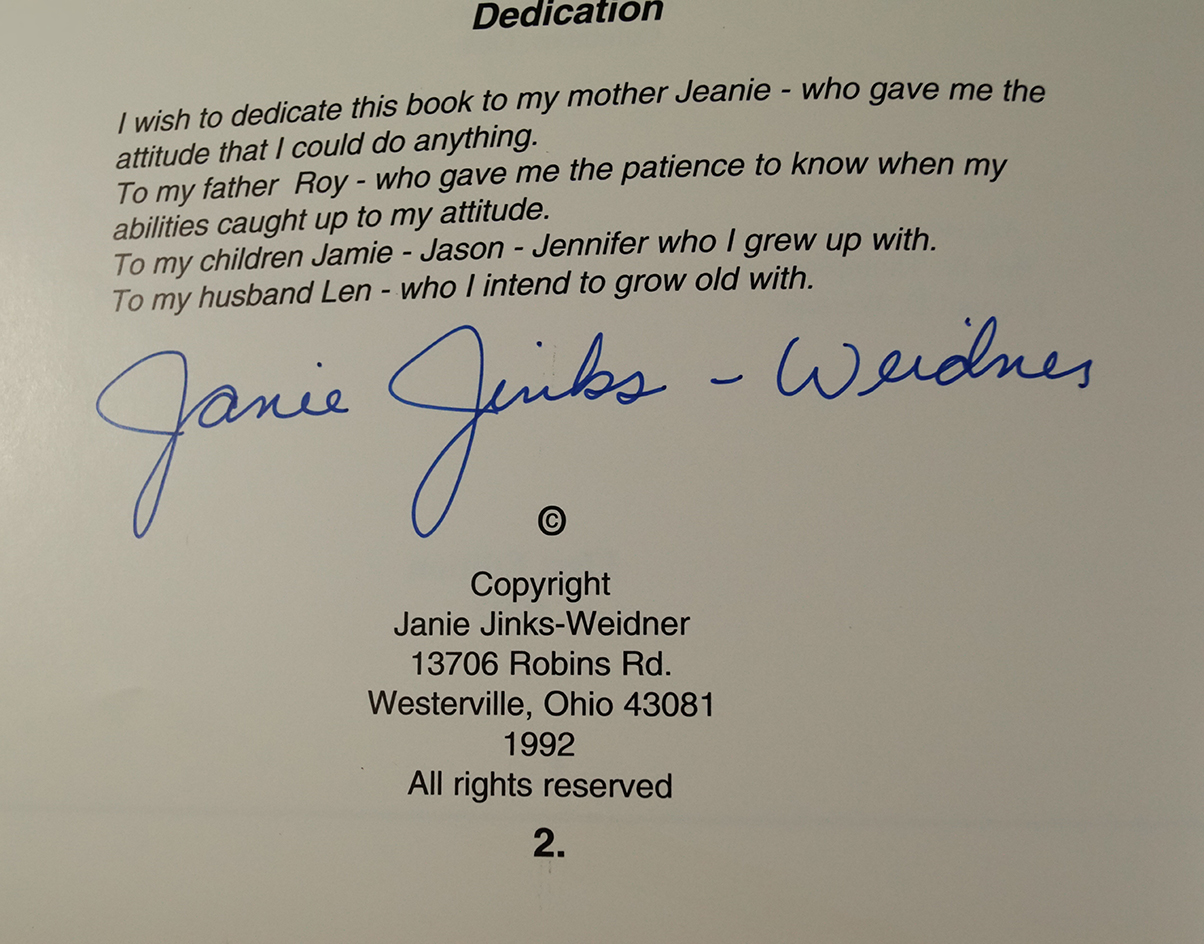 Dedication
I wish to dedicate this book to my mother Jeanie - who gave me the
attitude that I could do anything.
To my father Roy - who gave me the patience to know when my
abilities caught up to my attitude.
To my children Jamie - Jason - Jennifer who I grew up with.
To my husband Len - who I intend to grow old with.
Janie Jinks - Weidner
©
Copyright
Janie Jinks-Weidner
13706 Robins Rd.
Westerville, Ohio 43081
1992
All rights reserved
2.